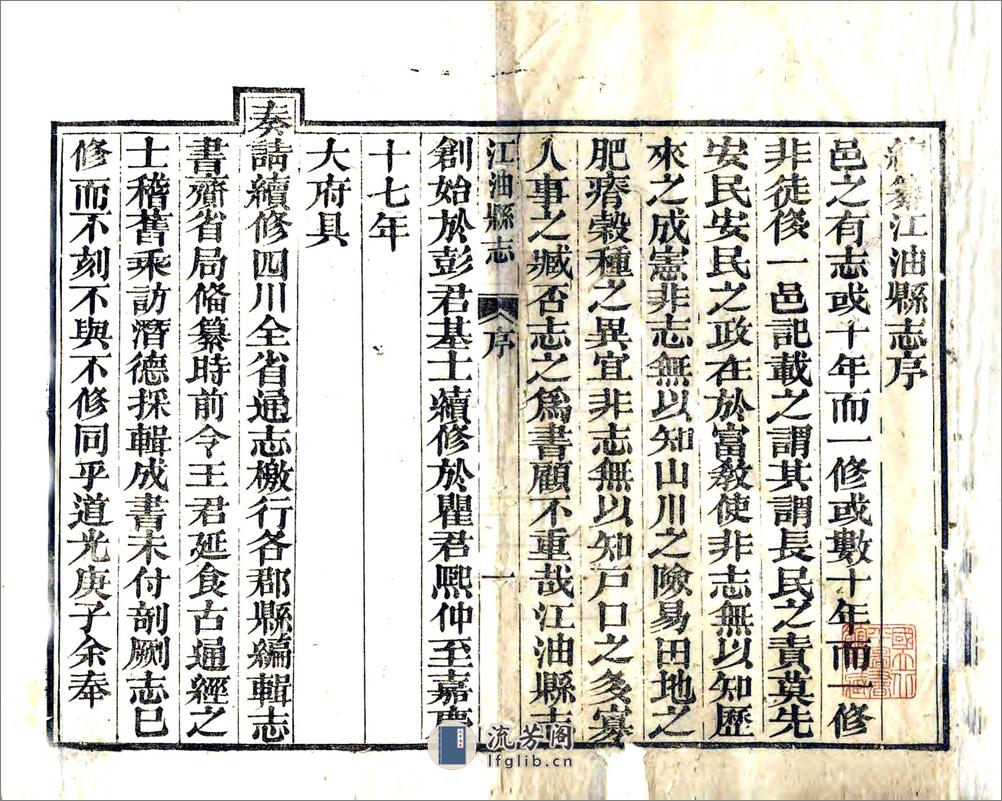 續纂江油縣志序
邑之有志或十年而一修或數十年而一修
非徒後一邑記載之謂其謂長民之責莫先
安民安民之政在於富教使非志無以知歷
來之成憲非志無以知山川之險易田地之
肥瘠穀種之異宜非志無以知戸口之多寡
人事之臧否志之爲書顧不重哉江油縣志
江油縣志 序 一
創始於彭君基士續修於瞿君熙仲至嘉慶
十七年
大府具
奏請續修四川全省通志檄行各郡縣編輯志
書齎省局俻纂時前令王君延食古通經之
士稽舊乘訪潛德採輯成書未付剞劂志已
修而不刻不與不修同乎道光庚子余奉
流芳阁
lfglib.cn